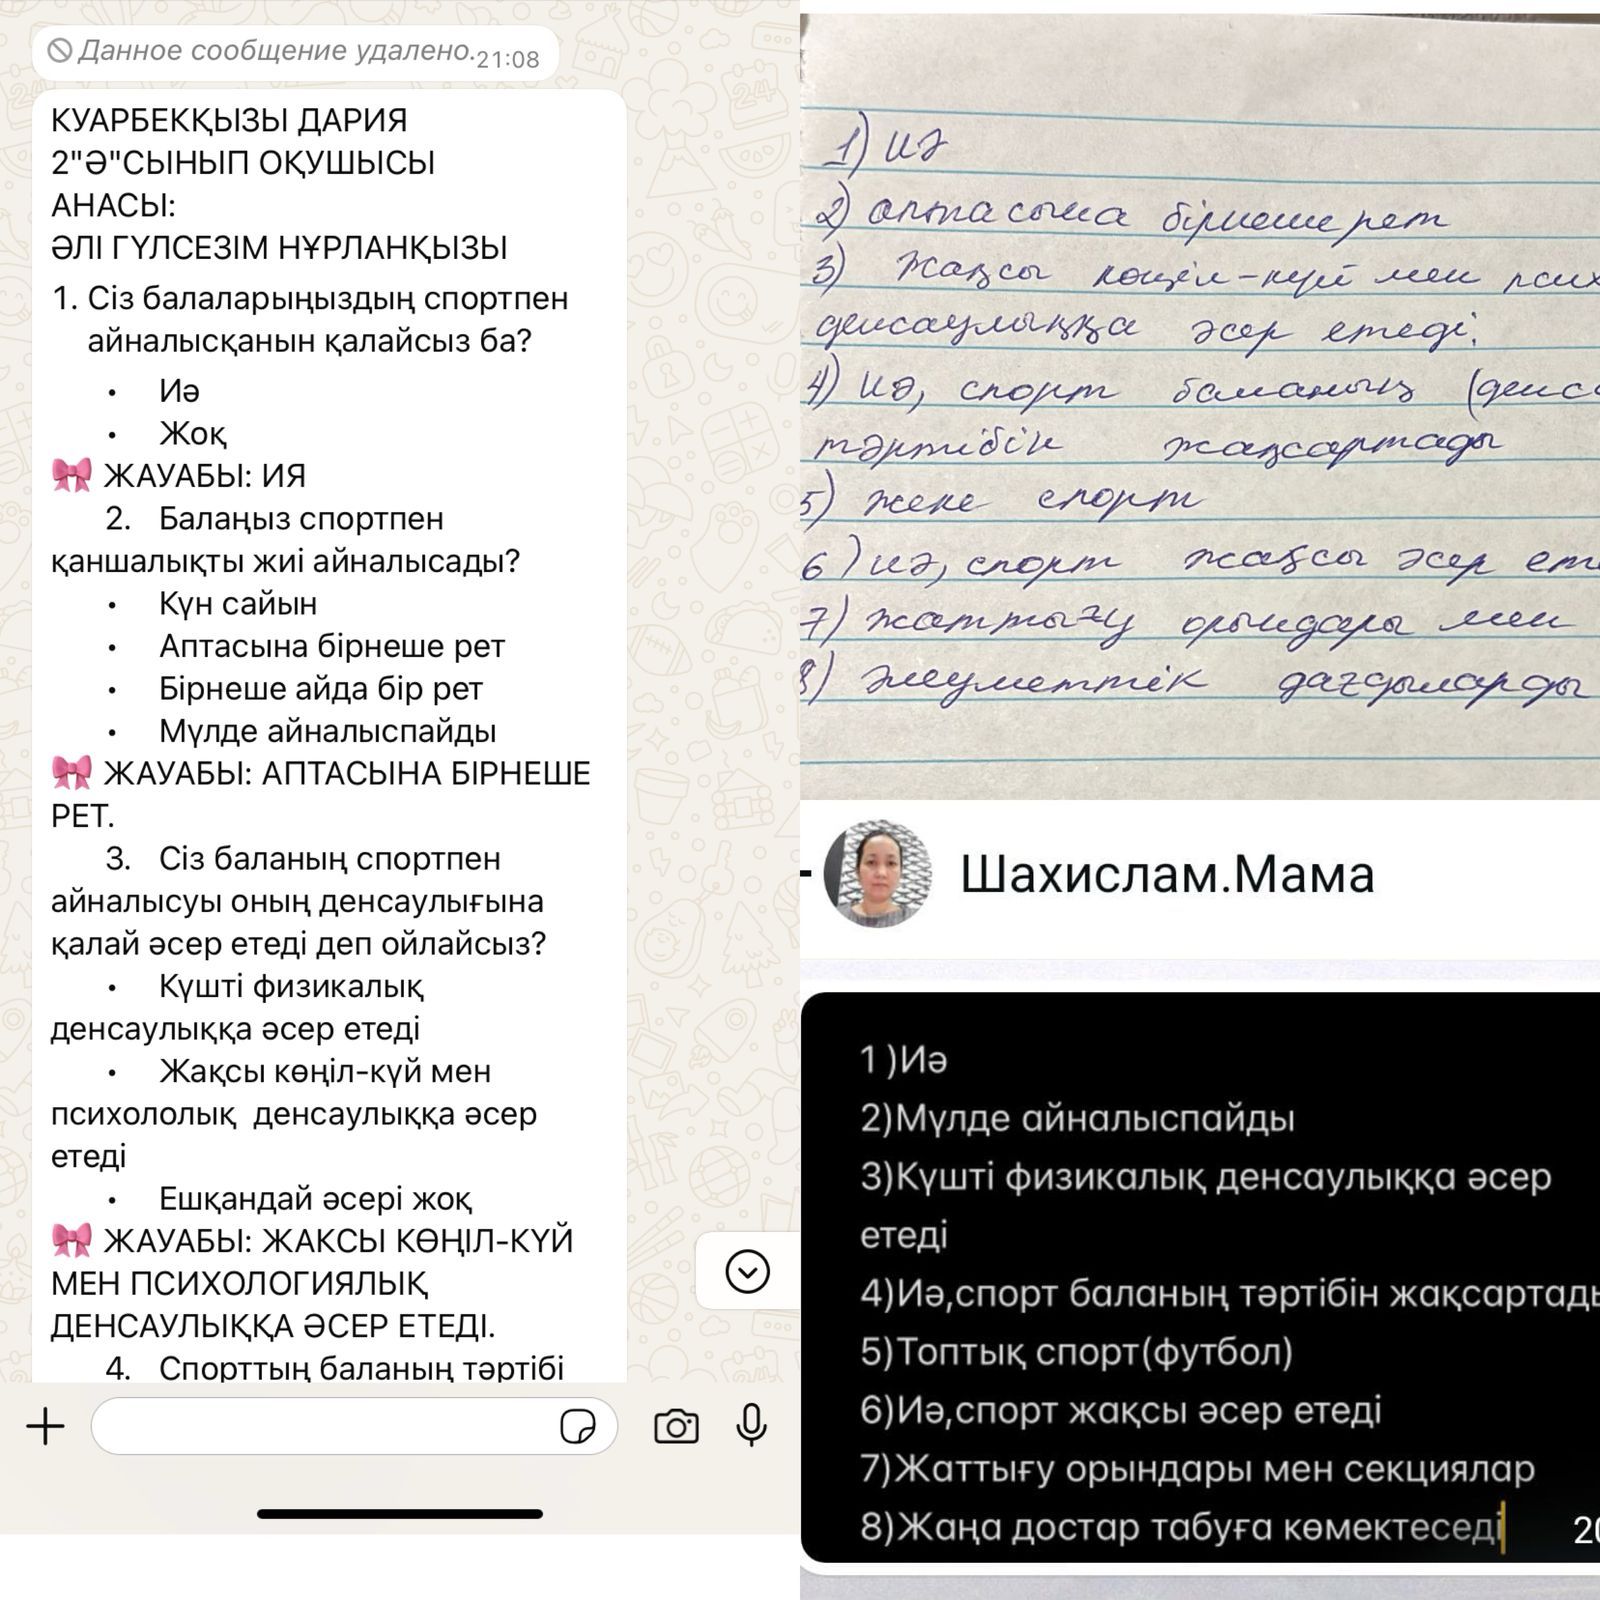 Данное сообщение удалено. 21:08
КУАРБЕКҚЫЗЫ ДАРИЯ
2"Ә"СЫНЫП ОҚУШЫСЫ
АНАСЫ:
ӘЛІ ГҮЛСЕЗІМ НҰРЛАНҚЫЗЫ
1. Сіз балаларыңыздың спортпен
айналысқанын қалайсыз ба?
• Иә
• Жоқ
🎀 ЖАУАБЫ: ИЯ
2. Балаңыз спортпен
қаншалықты жиі айналысады?
• Күн сайын
• Аптасына бірнеше рет
• Бірнеше айда бір рет
• Мүлде айналыспайды
🎀 ЖАУАБЫ: АПТАСЫНА БІРНЕШЕ
РЕТ.
3. Сіз баланың спортпен
айналысуы оның денсаулығына
қалай әсер етеді деп ойлайсыз?
• Күшті физикалық
денсаулыққа әсер етеді
• Жақсы көңіл-күй мен
психололық денсаулыққа әсер
етеді
• Ешқандай әсері жоқ
🎀 ЖАУАБЫ: ЖАКСЫ КӨҢІЛ-КҮЙ
МЕН ПСИХОЛОГИЯЛЫҚ
ДЕНСАУЛЫҚҚА ӘСЕР ЕТЕДІ.
4. Спорттың баланың тәртібі
1) иә
2) аптасына бірнеше рет
3) Жақсы көңіл-күй мен псих
денсаулыққа әсер етеді.
4) иә, спорт баланың (денс
тәртібін жақсартады
5) жеке спорт
6) иә, спорт жақсы әсер ет
7) жаттығу орындары мен
8) әлеуметтік дағдыларды
Шахислам.Мама
1 )Иә
2)Мүлде айналыспайды
3)Күшті физикалық денсаулыққа әсер
етеді
4)Иә,спорт баланың тәртібін жақсартады
5)Топтық спорт(футбол)
6)Иә,спорт жақсы әсер етеді
7)Жаттығу орындары мен секциялар
8)Жаңа достар табуға көмектеседі
20